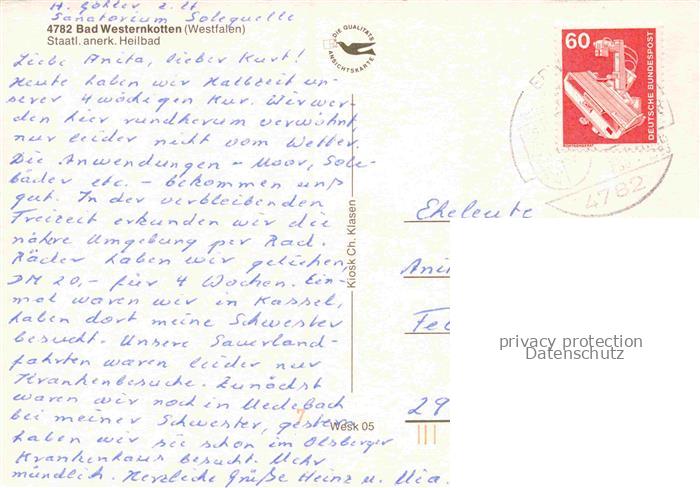 H. Gohler z. Zt
Sanatorium Solequelle
4782 Bad Westernkotten (Westfalen)
Staatl. anerk. Heilbad
Liebe Anita, lieber Kurt!
Heute haben wir Halbzeit un-
serer 4 wöchigen Kur. Wir wer-
den hier rundherum verwöhnt
nur leider nicht vom Wetter.
Die Anwendungen - Moor, Sole-
bäder etc. - bekommen uns
gut. In der verbleibenden
Freizeit erkunden wir die
nähere Umgebung per Rad.
Räder haben wir geliehen,
DM 20,- für 4 Wochen. Ein-
mal waren wir in Kassel,
haben dort meine Schwester
besucht. Unsere Sauerland-
fahrten waren leider nur
Krankenbesuche. Zunächst
waren wir noch in Medebach
bei meiner Schwester, gestern
haben wir sie schon im Olsberger
Krankenhaus besucht. Mehr
mündlich. Herzliche Grüße Heinz u. Mia.
DIE QUALITÄTS
ANSICHTSKARTE
Kiosk Ch. Klasen
Wesk 05
7
60
DEUTSCHE BUNDESPOST
4782
Eheleute
29
privacy protection
Datenschutz